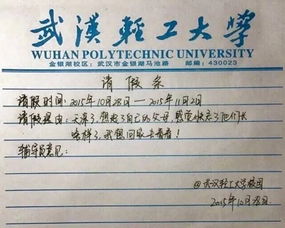 武漢輕工大學
WUHAN POLYTECHNIC UNIVERSITY
金银湖校区：武汉市金银湖马池路 邮编：430023
请假条
请假时间：2015年10月28日——2015年11月2日
请假理由：天凉了，想我了自己的父母，感觉快忘了他们长
啥样了，我想回家去看看！
辅导员意见：
@武汉轻工大学校园
2015年10月28日